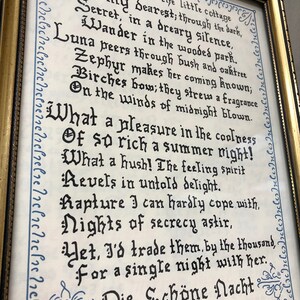 little cottage
dearest; through the dark,
Secret, in a dreary silence,
Wander in the wooded park.
Luna peers through bush and oaktree
Zephyr makes her coming known;
Birches bow; they strew a fragrance
On the winds of midnight blown.
What a pleasure in the coolness
Of so rich a summer night!
What a hush! The feeling spirit
Revels in untold delight.
Rapture I can hardly cope with,
Nights of secrecy astir,
Yet, I'd trade them, by the thousand
For a single night with her.
Die Schöne Nacht